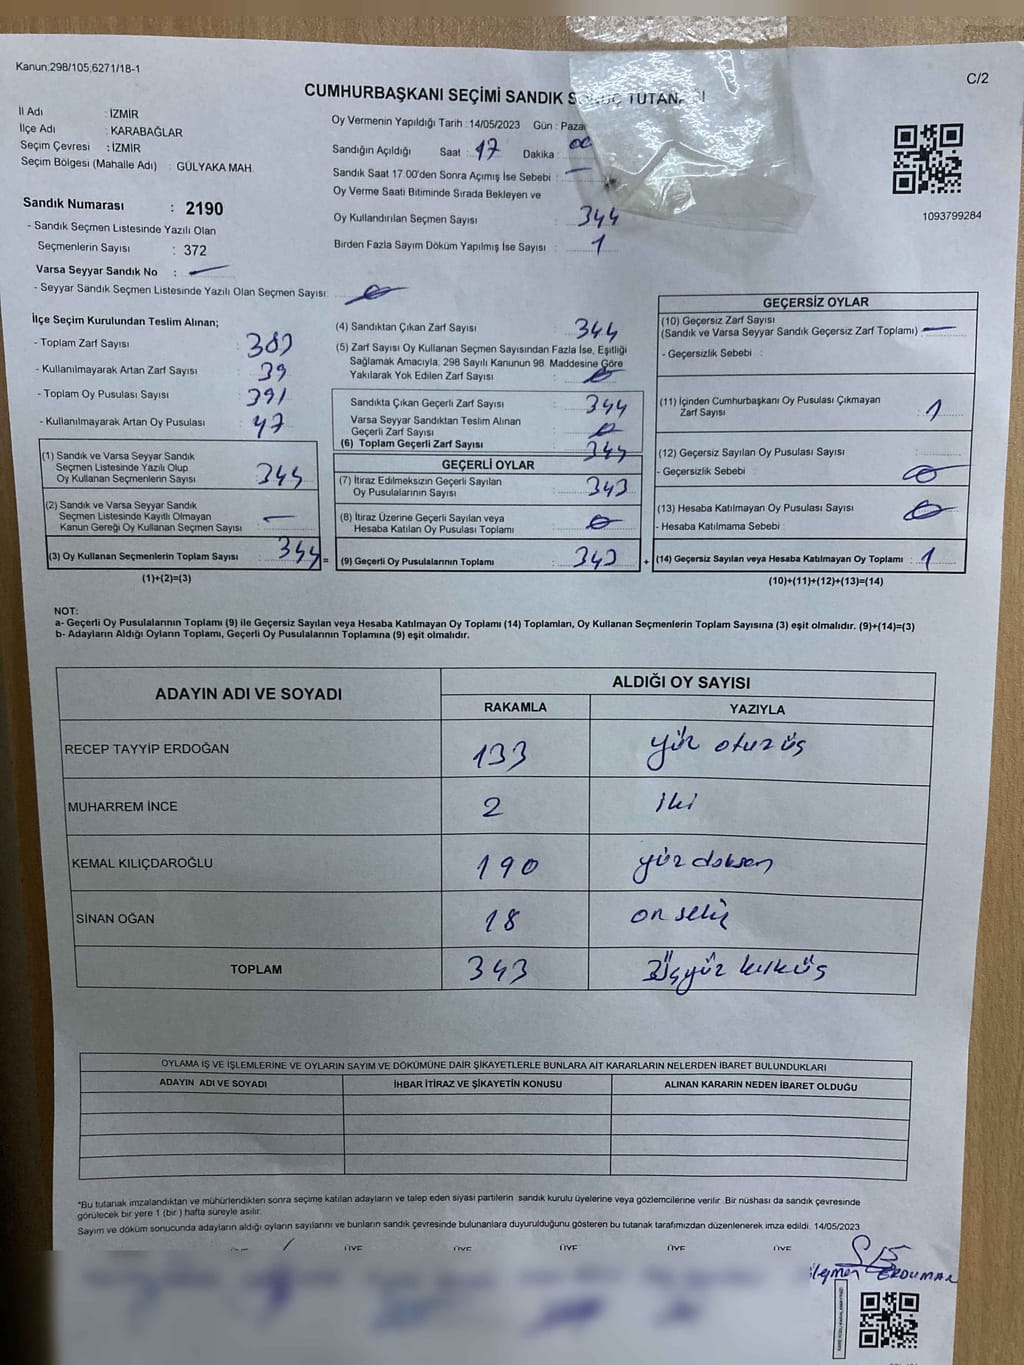 Kanun:298/105,6271/18-1
C/2
CUMHURBAŞKANI SEÇİMİ SANDIK
İl Adı : İZMİR
İlçe Adı : KARABAĞLAR
Seçim Çevresi : İZMİR
Seçim Bölgesi (Mahalle Adı) : GÜLYAKA MAH.
Oy Vermenin Yapıldığı Tarih : 14/05/2023 Gün : Pazar
Sandığın Açıldığı Saat : 17 Dakika : 00
Sandık Saat 17.00'den Sonra Açımış İse Sebebi : —
Oy Verme Saati Bitiminde Sırada Bekleyen ve
Oy Kullandırılan Seçmen Sayısı : 344
Birden Fazla Sayım Döküm Yapılmış İse Sayısı : 1
1093799284
Sandık Numarası : 2190
- Sandık Seçmen Listesinde Yazılı Olan
Seçmenlerin Sayısı : 372
Varsa Seyyar Sandık No : —
- Seyyar Sandık Seçmen Listesinde Yazılı Olan Seçmen Sayısı: 0
İlçe Seçim Kurulundan Teslim Alınan;
- Toplam Zarf Sayısı : 383
- Kullanılmayarak Artan Zarf Sayısı : 39
- Toplam Oy Pusulası Sayısı : 391
- Kullanılmayarak Artan Oy Pusulası : 47
(1) Sandık ve Varsa Seyyar Sandık
Seçmen Listesinde Yazılı Olup
Oy Kullanan Seçmenlerin Sayısı : 344
(2) Sandık ve Varsa Seyyar Sandık
Seçmen Listesinde Kayıtlı Olmayan
Kanun Gereği Oy Kullanan Seçmen Sayısı : —
(3) Oy Kullanan Seçmenlerin Toplam Sayısı : 344
(1)+(2)=(3)
(4) Sandıktan Çıkan Zarf Sayısı : 344
(5) Zarf Sayısı Oy Kullanan Seçmen Sayısından Fazla İse, Eşitliği
Sağlamak Amacıyla; 298 Sayılı Kanunun 98. Maddesine Göre
Yakılarak Yok Edilen Zarf Sayısı : 0
Sandıkta Çıkan Geçerli Zarf Sayısı : 344
Varsa Seyyar Sandıktan Teslim Alınan
Geçerli Zarf Sayısı : 0
(6) Toplam Geçerli Zarf Sayısı : 344
GEÇERLİ OYLAR
(7) İtiraz Edilmeksizin Geçerli Sayılan
Oy Pusulalarının Sayısı : 343
(8) İtiraz Üzerine Geçerli Sayılan veya
Hesaba Katılan Oy Pusulası Toplamı : 0
= (9) Geçerli Oy Pusulalarının Toplamı : 343
GEÇERSİZ OYLAR
(10) Geçersiz Zarf Sayısı
(Sandık ve Varsa Seyyar Sandık Geçersiz Zarf Toplamı) : —
- Geçersizlik Sebebi :
(11) İçinden Cumhurbaşkanı Oy Pusulası Çıkmayan
Zarf Sayısı : 1
(12) Geçersiz Sayılan Oy Pusulası Sayısı :
- Geçersizlik Sebebi : 0
(13) Hesaba Katılmayan Oy Pusulası Sayısı : 0
- Hesaba Katılmama Sebebi :
+ (14) Geçersiz Sayılan veya Hesaba Katılmayan Oy Toplamı : 1
(10)+(11)+(12)+(13)=(14)
NOT:
a- Geçerli Oy Pusulalarının Toplamı (9) ile Geçersiz Sayılan veya Hesaba Katılmayan Oy Toplamı (14) Toplamları, Oy Kullanan Seçmenlerin Toplam Sayısına (3) eşit olmalıdır. (9)+(14)=(3)
b- Adayların Aldığı Oyların Toplamı, Geçerli Oy Pusulalarının Toplamına (9) eşit olmalıdır.
ADAYIN ADI VE SOYADI ALDIĞI OY SAYISI
RAKAMLA YAZIYLA
RECEP TAYYİP ERDOĞAN 133 yüz otuz üç
MUHARREM İNCE 2 iki
KEMAL KILIÇDAROĞLU 190 yüz doksan
SİNAN OĞAN 18 on sekiz
TOPLAM 343 Üçyüz kırküç
OYLAMA İŞ VE İŞLEMLERİNE VE OYLARIN SAYIM VE DÖKÜMÜNE DAİR ŞİKAYETLERLE BUNLARA AİT KARARLARIN NELERDEN İBARET BULUNDUKLARI
ADAYIN ADI VE SOYADI İHBAR İTİRAZ VE ŞİKAYETİN KONUSU ALINAN KARARIN NEDEN İBARET OLDUĞU
*Bu tutanak imzalandıktan ve mühürlendikten sonra seçime katılan adayların ve talep eden siyasi partilerin sandık kurulu üyelerine veya gözlemcilerine verilir. Bir nüshası da sandık çevresinde
görülecek bir yere 1 (bir) hafta süreyle asılır.
Sayım ve döküm sonucunda adayların aldığı oyların sayılarını ve bunların sandık çevresinde bulunanlara duyurulduğunu gösteren bu tutanak tarafımızdan düzenlenerek imza edildi. 14/05/2023
ÜYE ÜYE ÜYE ÜYE ÜYE ÜYE
ERDUMAN